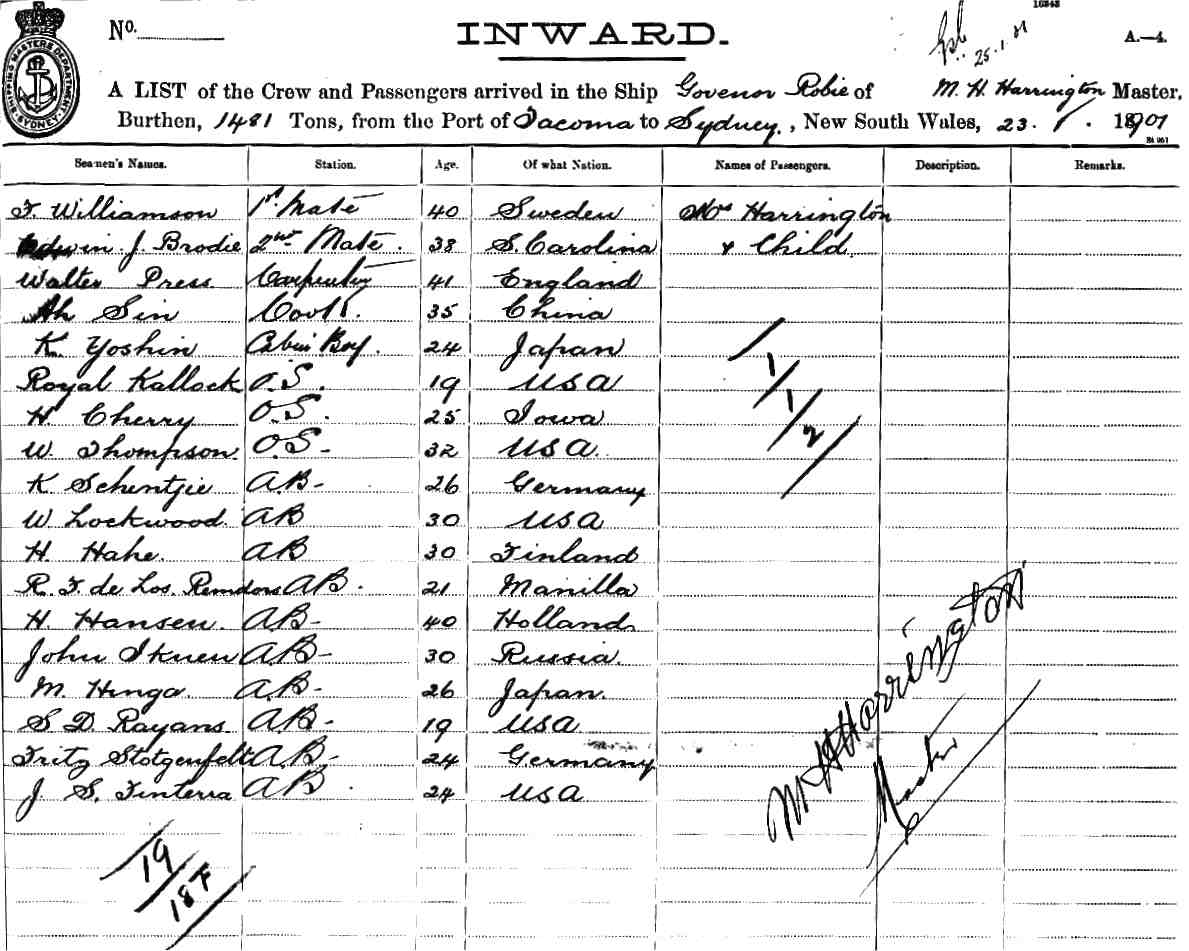 SHIPPING MASTERS DEPARTMENT
SYDNEY
No.
INWARD.
16343
25.1.01
A.—4.
A LIST of the Crew and Passengers arrived in the Ship Govenor Robie of M. H. Harrington Master,
Burthen, 1481 Tons, from the Port of Tacoma to Sydney, New South Wales, 23. 1. 1901
Seamen's Names. Station. Age. Of what Nation. Names of Passengers. Description. Remarks.
F. Williamson 1st Mate 40 Sweden Mrs Harrington
Edwin J. Brodie 2nd Mate. 38 S. Carolina & Child
Walter Press Carpenter 41 England
Ah Sin Cook. 35 China
K. Yoshin Cabin Boy. 24 Japan
Royal Kallock O.S. 19 USA
H Cherry O.S. 25 Iowa
W. Thompson. O.S- 32 USA.
K Schentjie A.B- 26 Germany
W Lockwood. AB 30 USA
H. Hahe. AB 30 Finland
R. F. de Los. Remdons AB. 21 Manilla
H. Hansen. A.B- 40 Holland
John Iknen A.B- 30 Russia.
M. Hinga. A.B- 26 Japan.
S. D. Rayans A.B- 19 USA
Fritz Stotgenfelt A.B- 24 Germany
J. S. Finterra AB. 24 USA
1
1
2
M H Harrington
Master
19
18 F